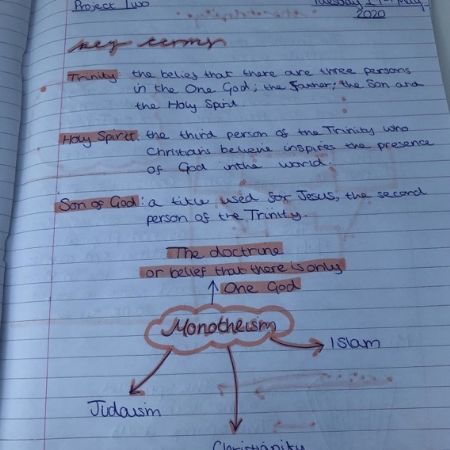 Project Two
Tuesday 19th May
2020
key terms
Trinity: the belief that there are three persons
in the One God; the Father, the Son and
the Holy Spirit.
Holy Spirit: the third person of the Trinity who
Christians believe inspires the presence
of God in the world.
Son of God: a title used for Jesus, the second
person of the Trinity.
The doctrine
or belief that there is only
One God
Monotheism
Islam
Judaism
Christianity